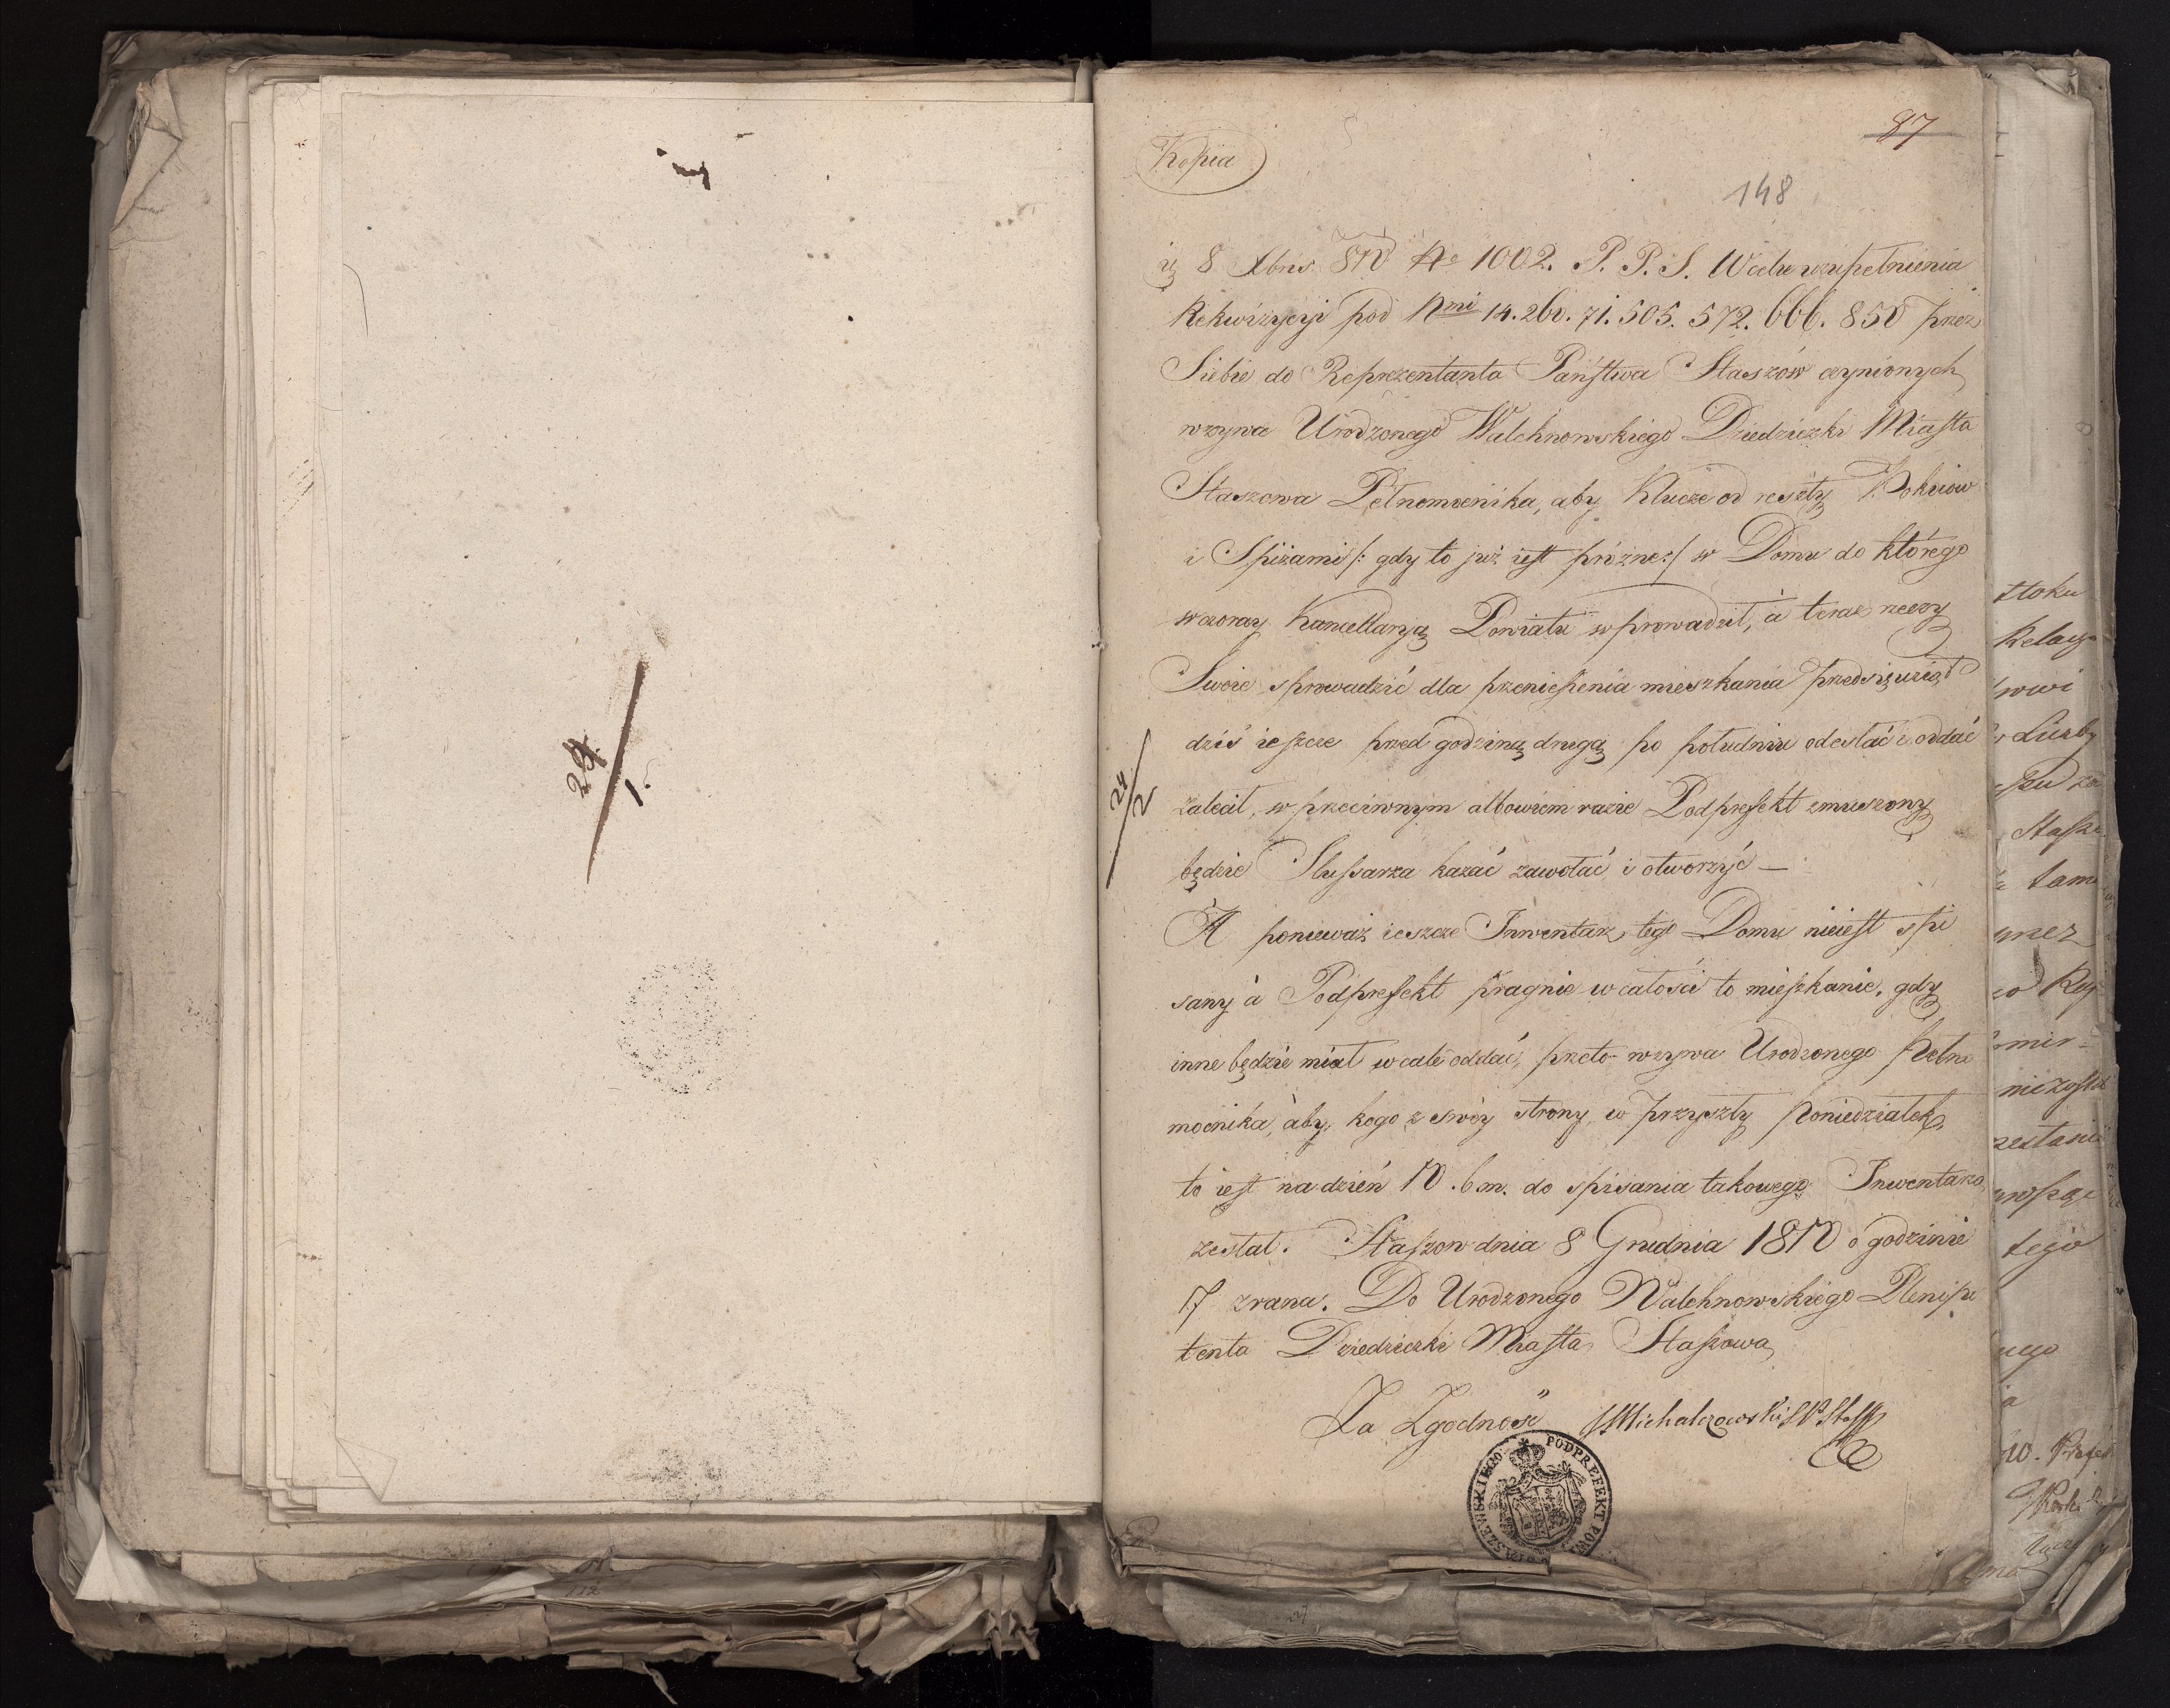 24/1.
87
Kopia
148
8 Xbris 810 No 1002. P. P. S. W celu uzupełnienia
Rekwizycyi pod Nmi 14. 260. 71. 505. 572. 666. 850 przez
Siebie do Reprezentanta Państwa Staszów czynionych
wzywa Urodzonego Walchnowskiego Dziedziczki Miasta
Staszowa Pełnomocnika, aby Klucze od reszty Pokoiow
i Spiżarni /: gdy to już iest próżne :/ w Domu do którego
wczoray Kancellaryą Powiatu wprowadził, a teraz rzeczy
Swoie sprowadzić dla przeniesienia mieszkania przedsięwziął
dziś ieszcze przed godziną drugą po południu odesłać i oddać
24/2
zalecił, w przeciwnym albowiem razie Podprefekt zmuszony
będzie Slussarza kazać zawołać i otworzyć —
A ponieważ ieszcze Inwentarz tego Domu nieiest spi
sany a Podprefekt pragnie w całości to mieszkanie, gdy
inne będzie miał w cale oddać, przeto wzywa Urodzonego Pełno
mocnika, aby kogo z swóy strony w przyszły Poniedziałek
to iest na dzień 10. b. m. do spisania takowego Inwentarza
zesłał. Staszow dnia 8 Grudnia 1810 o godzinie
7 zrana. Do Urodzonego Walchnowskiego Plenipo
tenta Dziedziczki Miasta Staszowa
Za Zgodność Michalczowski S. P. Stasz
PODPREFEKT POWI SZEWSKIEGO